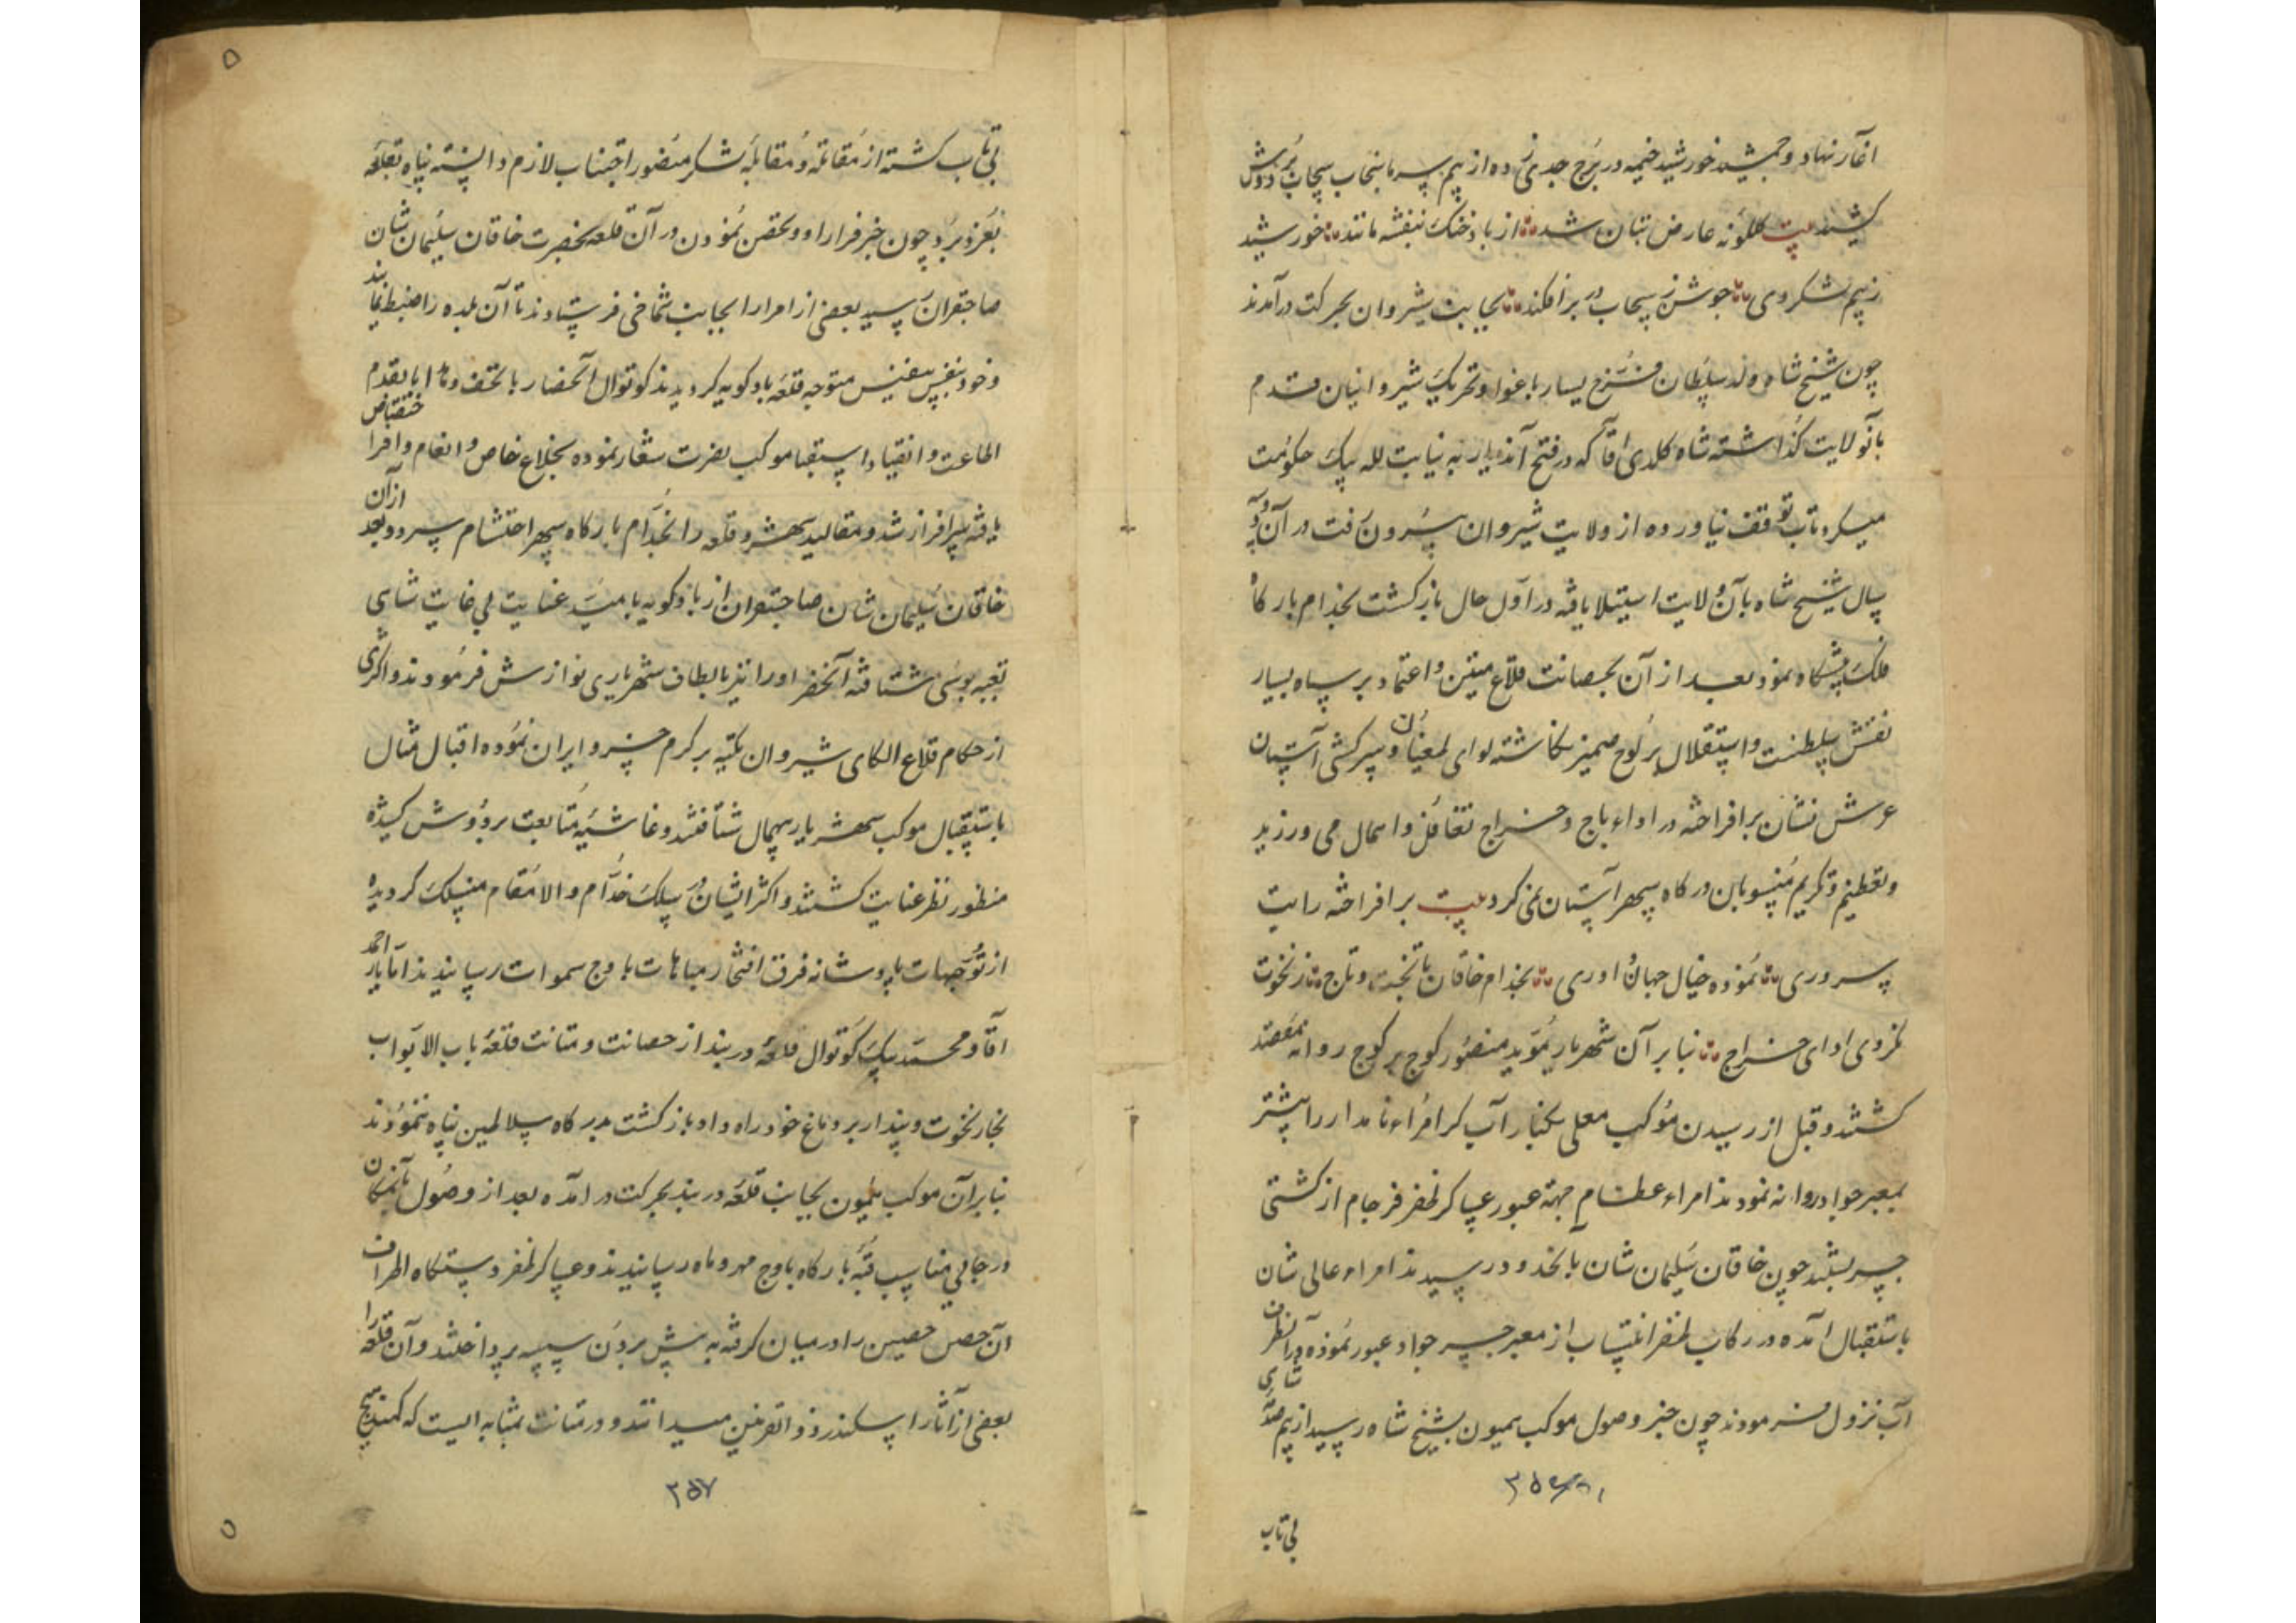 آغاز نهاد و جمشید خورشید خیمه در برج جدی زده از بیم سرما سنجاب سحاب بر دوش
کشید بیت گلگونه عارض بتان شد از باد خنک بنفشه مانند خورشید
ز بیم لشکر دی جوشن ز سحاب در بر افکند بجانب شیروان بحرکت درآمدند
چون شیخ شاه ولد سلطان فرخ یسار باغوا و تحریک شیروانیان قدم
بآنولایت گذاشته شاه کلدی آقا که در فتح آذ به نیابت لله بیک حکومت
میکرد تاب توقف نیاورده از ولایت شیروان بیرون رفت در آن دو
سال شیخ شاه بآن ولایت استیلا یافته در اول حال بازگشت بخدام بارگاه
فلک پیشگاه نمود بعد از آن بحصانت قلاع متین و اعتماد بر سپاه بسیار
نقش سلطنت و استقلال بر لوح ضمیر نگاشته لوای طغیان و سرکشی آستان
عرش نشان برافراخته در اداء باج و خراج تغافل و اهمال می ورزید
و تعظیم و تکریم منسوبان درگاه سپهر آستان نمی کرد بیت برافراخته رایت
سروری نموده خیال جهان داوری بخدام خاقان با تخت و تاج ز نخوت
نکردی ادای خراج بنابر آن شهریار مؤید منصور کوچ بر کوچ روانه مقصد
گشتند و قبل از رسیدن موکب معلی بکنار آب کر امراء نامدار را پیشتر
بمعبر جواد روانه نمودند امراء عظام جهة عبور عساکر ظفر فرجام از کشتی
جسر بستند چون خاقان سلیمان شان بآنحدود رسیدند امراء عالی شان
باستقبال آمده در رکاب ظفر انتساب از معبر جسر جواد عبور نموده در آنطرف
آب نزول فرمودند چون خبر وصول موکب همیون بشیخ شاه رسید از بیم صدمه شاهی
۳۵۶
بی تاب
بی تاب گشته از مقاتله و مقابله لشکر منصور اجتناب لازم دانسته پناه بقلعه
بغرد برد چون خبر فرار او و تحصن نمودن در آن قلعه بحضرت خاقان سلیمان شان
صاحبقران رسید بعضی از امرا را بجانب شماخی فرستادند تا آن بلده را ضبط نمایند
و خود بنفس نفیس متوجه قلعه بادکویه گردیدند کوتوال آنحصار با تحف و هدایا بقدم
اطاعت و انقیاد استقبال موکب نصرت شعار نموده بخلاع خاص و انعام وافر اختصاص
یافته سرافراز شد و مقالید شهر و قلعه را بخدام بارگاه سپهر احتشام سپرد و بعد از آن
خاقان سلیمان شان صاحبقران از بادکویه بامید عنایت بی غایت شاهی
بعتبه بوسی شتافته آنحضرت او را نیز بالطاف شهریاری نوازش فرمودند و اکثری
از حکام قلاع الکای شیروان تکیه بر کرم خسرو ایران نموده اقبال مثال
باستقبال موکب شهریار بیهمال شتافتند و غاشیه متابعت بر دوش کشیده
منظور نظر عنایت گشتند و اکثر ایشان در سلک خدام والا مقام منسلک گردیده
از توجهات پادشانه فرق افتخار و مباهات باوج سموات رسانیدند اما یار احمد
آقا و محمد بیک کوتوال قلعه دربند از حصانت و متانت قلعه باب الابواب
بخار نخوت و پندار بر دماغ خود راه داده بازگشت بدرگاه سلاطین پناه ننمودند
بنابر آن موکب همیون بجانب قلعه دربند بحرکت درآمده بعد از وصول بآنمکان
در جائی مناسب قبه بارگاه باوج مهر و ماه رسانیدند و عساکر ظفر دستگاه اطراف
آن حصن حصین را در میان گرفته به پیش بردن سیبه پرداختند و آن قلعه را
بعضی از آثار اسکندر ذو القرنین میدانند و در متانت بمثابه ایست که کمند هیچ
۳۵۷